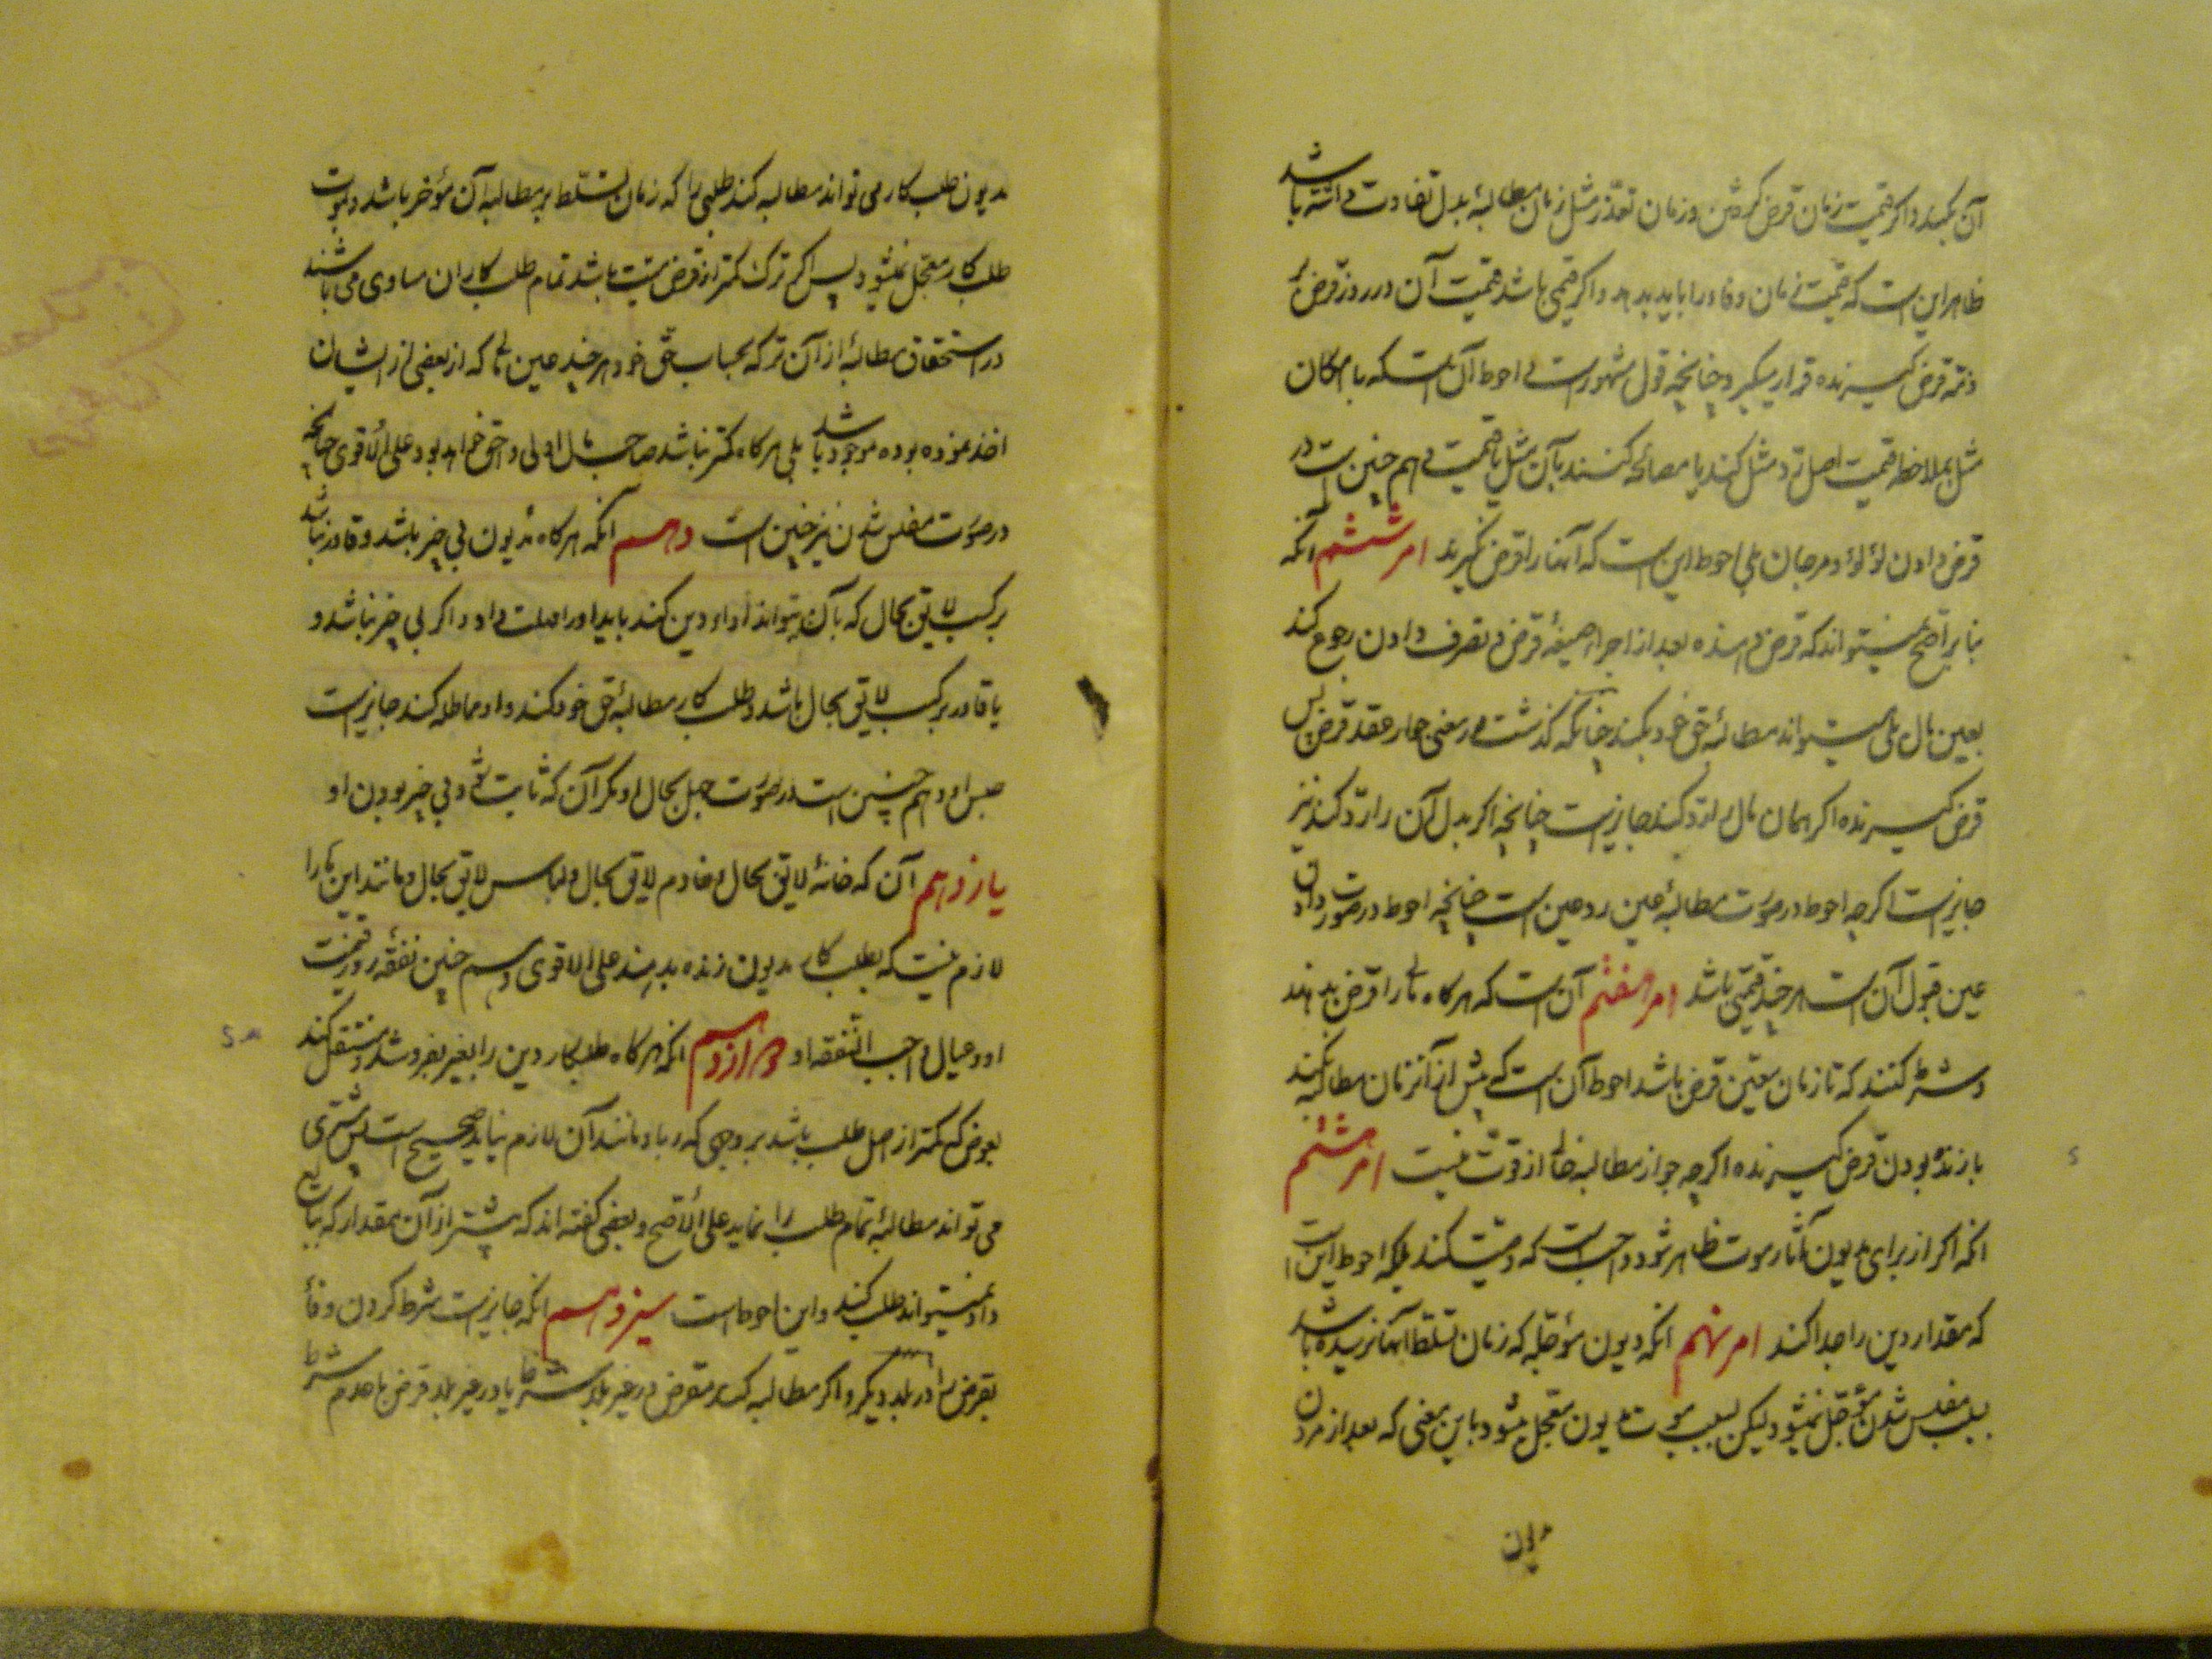 آن بکند و اکر قیمت زمان قرض کرفتن و زمان تعذّر مثل زمان مطالبهٔ بدل تفاوت داشته باشد
ظاهر این است که قیمت زمان وفا را باید بدهد و اکر قیمی باشد قیمت آن در روز قرض
ذمّه قرض کیرنده قرار میکیرد چنانچه قول مشهور است و احوط آن است که با امکان
مثل بملاحظه قیمت اصل ردّ مثل کند یا مصالحه کنند بآن مثل یا قیمت و هم چنین است در
قرض دادن لؤلؤ و مرجان بلی احوط این است که آنها را قرض نکیرند امر ششم آنکه
بنا بر اصّح نمیتواند که قرض دهنده بعد از اجراء صیغهٔ قرض و تصرف دادن رجوع کند
بعین مال بلی میتواند مطالبهٔ حق خود بکند چنانکه کذشت در معنی جواز عقد قرض پس
قرض کیرنده اکر همان مال را ردّ کند جایز است چنانچه اکر بدل آن را ردّ کند نیز
جایز است اکرچه احوط در صورت مطالبهٔ عین ردّ عین است چنانچه احوط در صورت دادن
عین قبول آن است هر چند قیمی باشد امر هفتم آن است که هر کاه مالی را قرض بدهند
و شرط کنند که تا زمان معیّن قرض باشد احوط آن است که پیش از آن زمان مطالبه نکند
با زنده بودن قرض کیرنده اکرچه جواز مطالبه خالی از قوّت نیست امر هشتم
آنکه اکر از برای مدیون آثار موت ظاهر شود واجب است که وصیّت کند بلکه احوط این است
که مقدار دین را جدا کند امر نهم آنکه دیون مؤجّله که زمان تسلّط آنها نرسیده باشد
بسبب مفلس شدن مؤجّل نمیشود لیکن بسبب موت مدیون معجّل میشود باین معنی که بعد از مردن
مدیون
مدیون طلب کار می تواند مطالبه کند طلبی را که زمان تسلّط بر مطالبه آن مؤخر باشد و بموت
طلب کار معجّل نمیشود پس اکر ترکه کمتر از قرض میّت باشد تمام طلب کاران مساوی می باشند
در استحقاق مطالبهٔ از آن ترکه بحساب حقّ خود هر چند عین مالی که از بعضی از ایشان
اخذ نموده بوده موجود باشد بلی هر کاه کمتر نباشد صاحب مال اولی و احق خواهد بود علی الأقوی چنانچه
در صورت مفلس شدن نیز چنین است دهم آنکه هر کاه مدیون بی چیز باشد و قادر نباشد
بر کسب لایق بحال که بآن بتواند أداء دین کند باید او را مهلت داد و اکر بی چیز نباشد و
یا قادر بر کسب لایق بحال باشد و طلب کار مطالبهٔ حق خود کند و او مماطله کند جایز است
حبس او و هم چنین است در صورت جهل بحال او مکر آن که ثابت شود بی چیز بودن او
یازدهم آن که خانهٔ لایق بحال و خادم لایق بحال و لباس لایق بحال و مانند این ها را
لازم نیست که بطلب کار مدیون زنده بدهند علی الأقوی و هم چنین نفقه روز قسمت
او و عیال واجب النّفقه او دوازدهم آنکه هر کاه طلبکار دین را بغیر بفروشد و منتقل کند
بعوض که کمتر از اصل طلب باشد بر وجهی که ربا و مانند آن لازم نیاید صحیح است پس مشتری
می تواند مطالبهٔ تمام طلب را نماید علی الأصّح و بعضی کفته اند که بیشتر از آن مقدار که ببایع
داده نمیتواند طلب کند و این احوط است سیزدهم آنکه جایز است شرط کردن وفأ
بقرض را در بلد دیکر و اکر مطالبه کند مقرض در غیر بلد شرط یا در غیر بلد قرض با عدم شرط